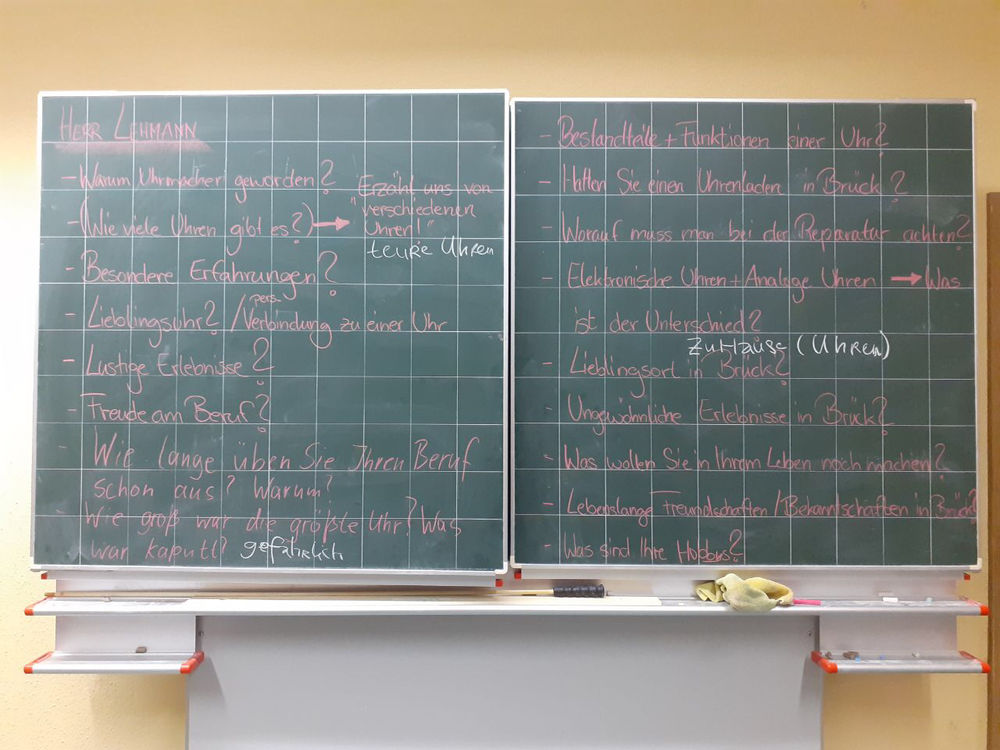 HERR LEHMANN
- Warum Uhrmacher geworden?
- (Wie viele Uhren gibt es?) → "Erzählt uns von
verschiedenen
Uhren!"
teure Uhren
- Besondere Erfahrungen?
- Lieblingsuhr? / pers. Verbindung zu einer Uhr
- Lustige Erlebnisse?
- Freude am Beruf?
- Wie lange üben Sie Ihren Beruf
schon aus? Warum?
- Wie groß war die größte Uhr? Was
war kaputt? gefährlich
- Bestandteile + Funktionen einer Uhr?
- Hatten Sie einen Uhrenladen in Brück?
- Worauf muss man bei der Reparatur achten?
- Elektronische Uhren + Analoge Uhren → Was
ist der Unterschied?
ZuHause (Uhren)
- Lieblingsort in Brück?
- Ungewöhnliche Erlebnisse in Brück?
- Was wollen Sie in Ihrem Leben noch machen?
- Lebenslange Freundschaften / Bekanntschaften in Brück?
- Was sind Ihre Hobbys?